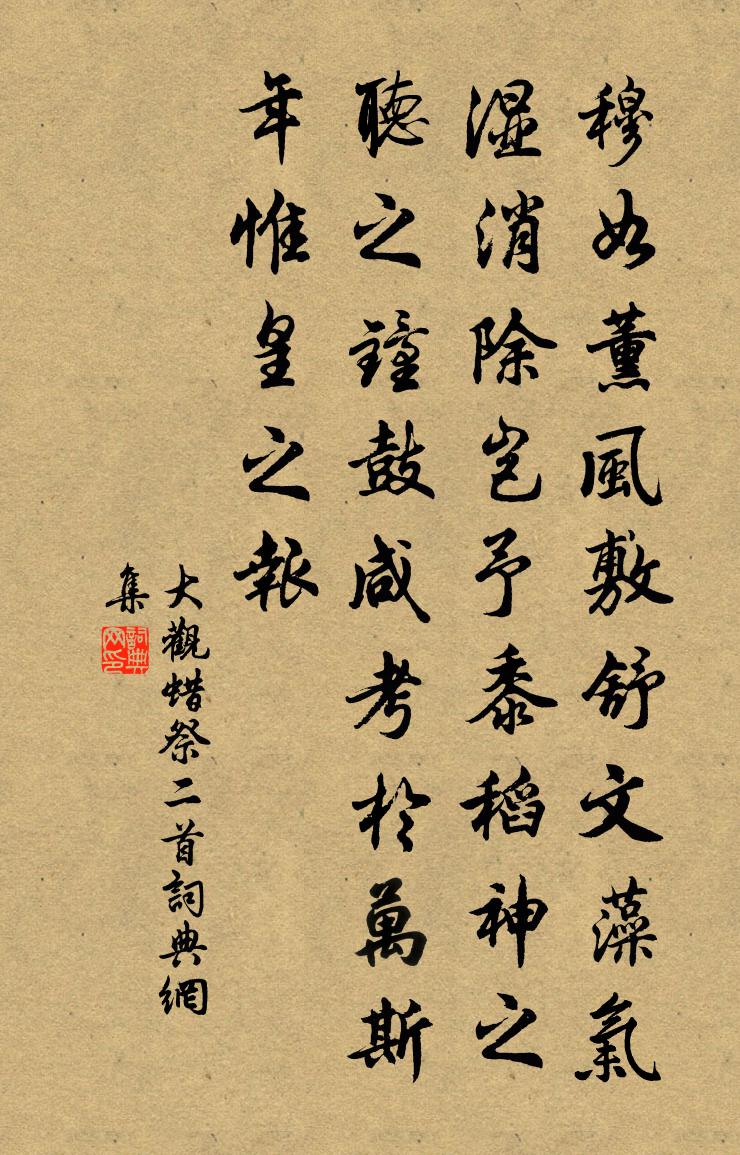 穆如薰風敷舒文藻氣
濕消除豈予黍稻神之
聽之鐘鼓咸考於萬斯
年惟皇之報
大觀蜡祭二首詞典網
集
詞典
网印